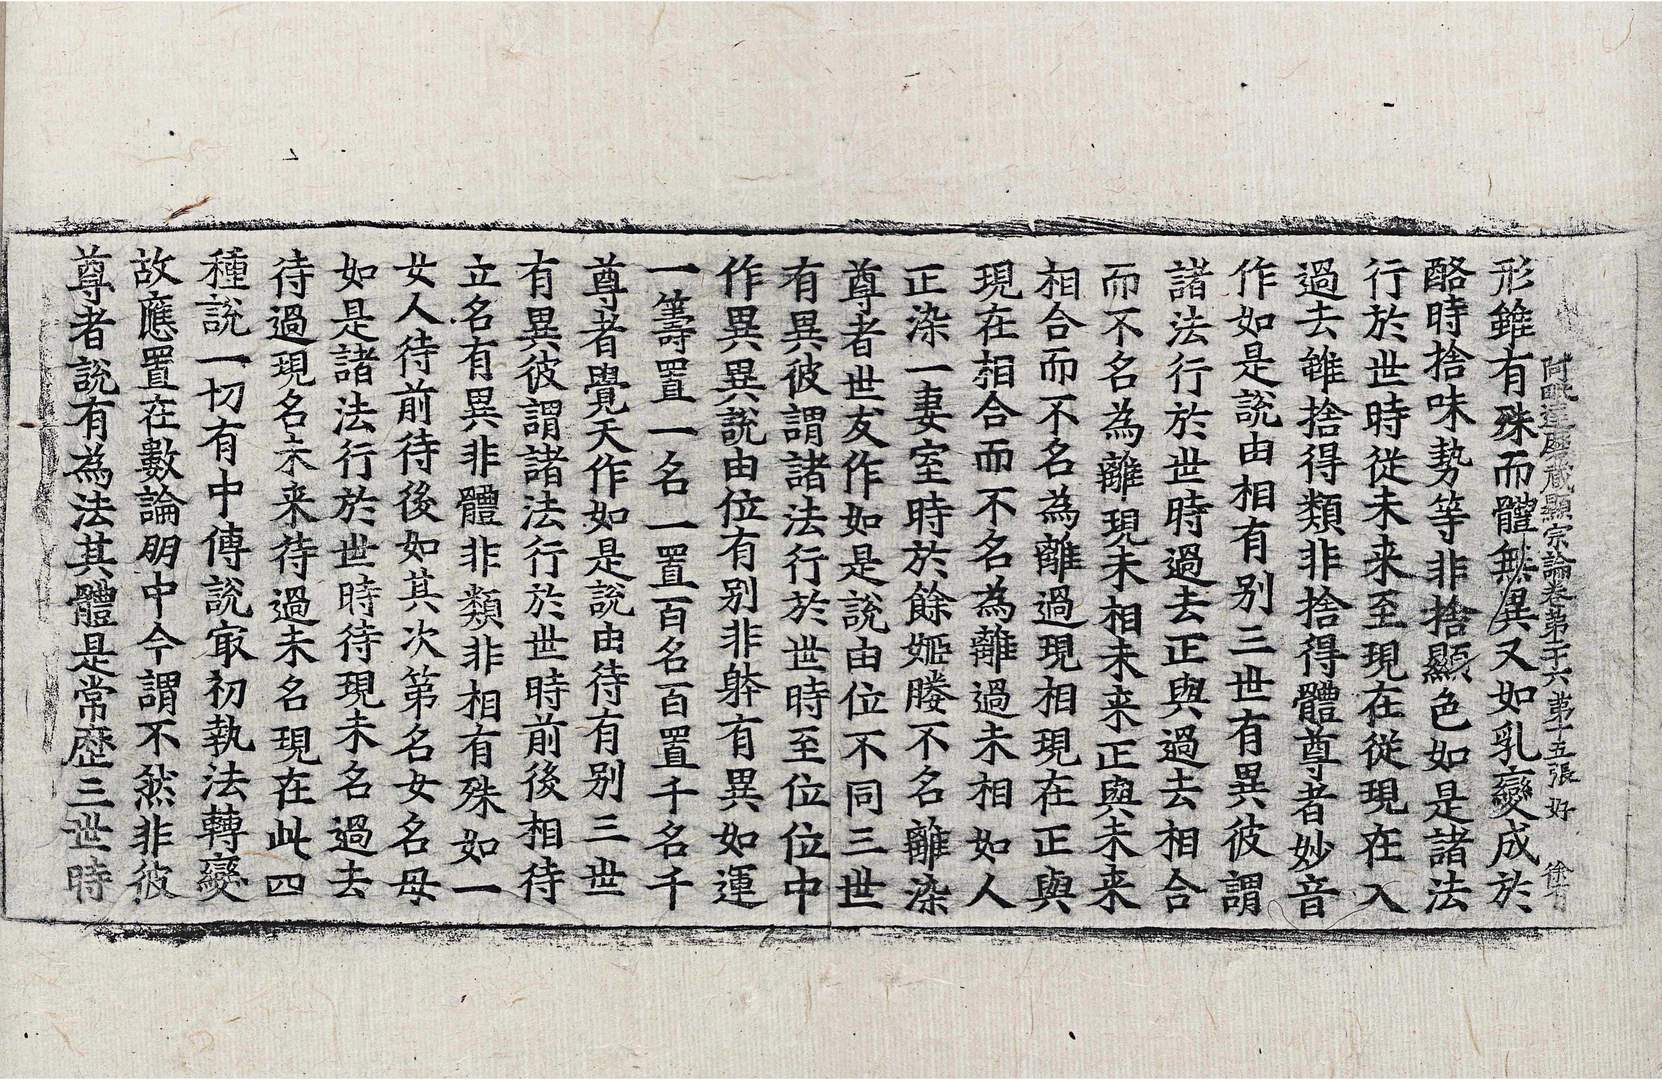 阿毗達磨藏顯宗論卷第二十六 第十五張 好
形雖有殊而體無異又如乳變成於
酪時捨味勢等非捨顯色如是諸法
行於世時從未来至現在從現在入
過去雖捨得類非捨得體尊者妙音
作如是說由相有别三世有異彼謂
諸法行於世時過去正與過去相合
而不名為離現未相未来正與未来
相合而不名為離過現相現在正與
現在相合而不名為離過未相如人
正染一妻室時於餘姬媵不名離染
尊者世友作如是說由位不同三世
有異彼謂諸法行於世時至位位中
作異異說由位有别非躰有異如運
一籌置一名一置百名百置千名千
尊者覺天作如是說由待有别三世
有異彼謂諸法行於世時前後相待
立名有異非體非類非相有殊如一
女人待前待後如其次第名女名母
如是諸法行於世時待現未名過去
待過現名未来待過未名現在此四
種說一切有中傳說㝡初執法轉變
故應置在數論朋中今謂不然非彼
尊者說有為法其體是常歴三世時